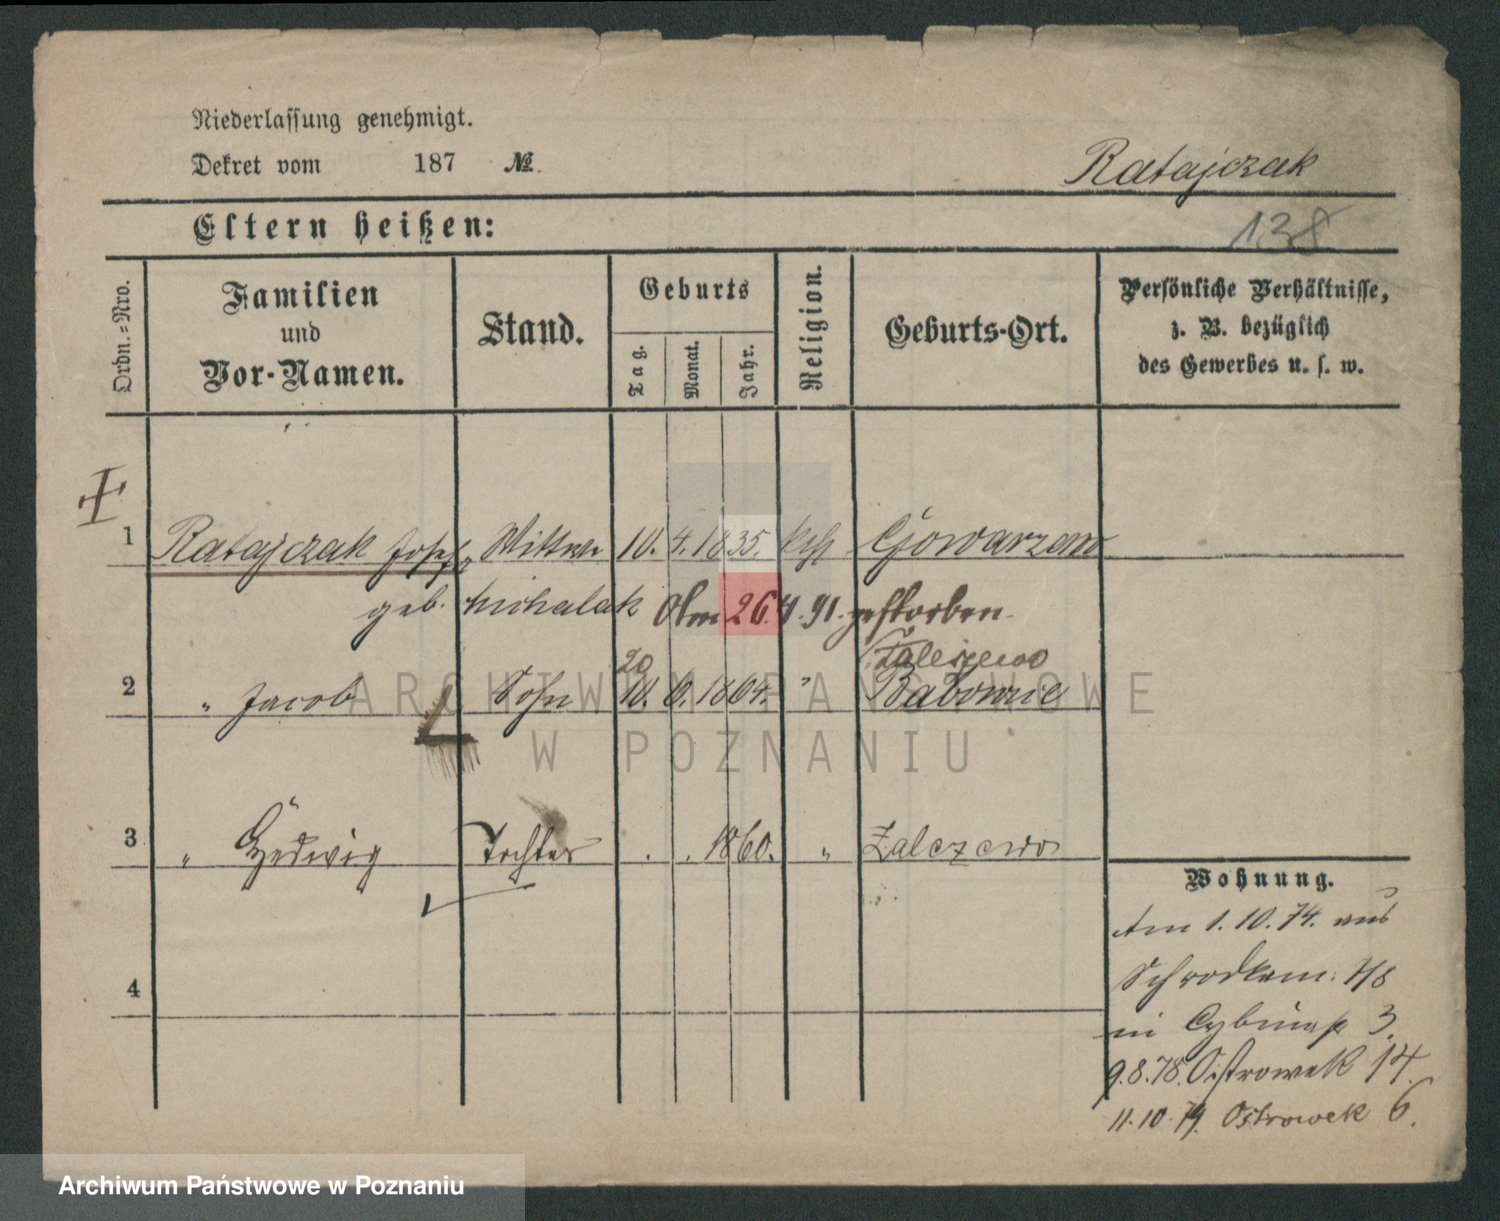 Niederlassung genehmigt.
Dekret vom 187 №
Ratajczak
Eltern heißen:
138
Ordn.-Nro.
Familien
und
Vor-Namen.
Stand.
Geburts
Tag.
Monat.
Jahr.
Religion.
Geburts-Ort.
Persönliche Verhältnisse,
z. B. bezüglich
des Gewerbes u. s. w.
1 Ratajczak Josefa Wittwe 10. 4. 1835. kth Gowarzewo
geb. Michalak Am 26. 4. 91. gestorben
20 Zaleszewo
2 " Jacob Sohn 10. 6. 1864. " Babownie
ARCHIWUM PAŃSTWOWE
W POZNANIU
3 " Hedwig Tochter . . 1860. " Zalezewo
Wohnung.
Am 1. 10. 74. aus
Schrodkam. 7/8
in Cybinastr 3.
4
9.8.78. Ostrowek 14.
11.10.79. Ostrowek 6.
Archiwum Państwowe w Poznaniu